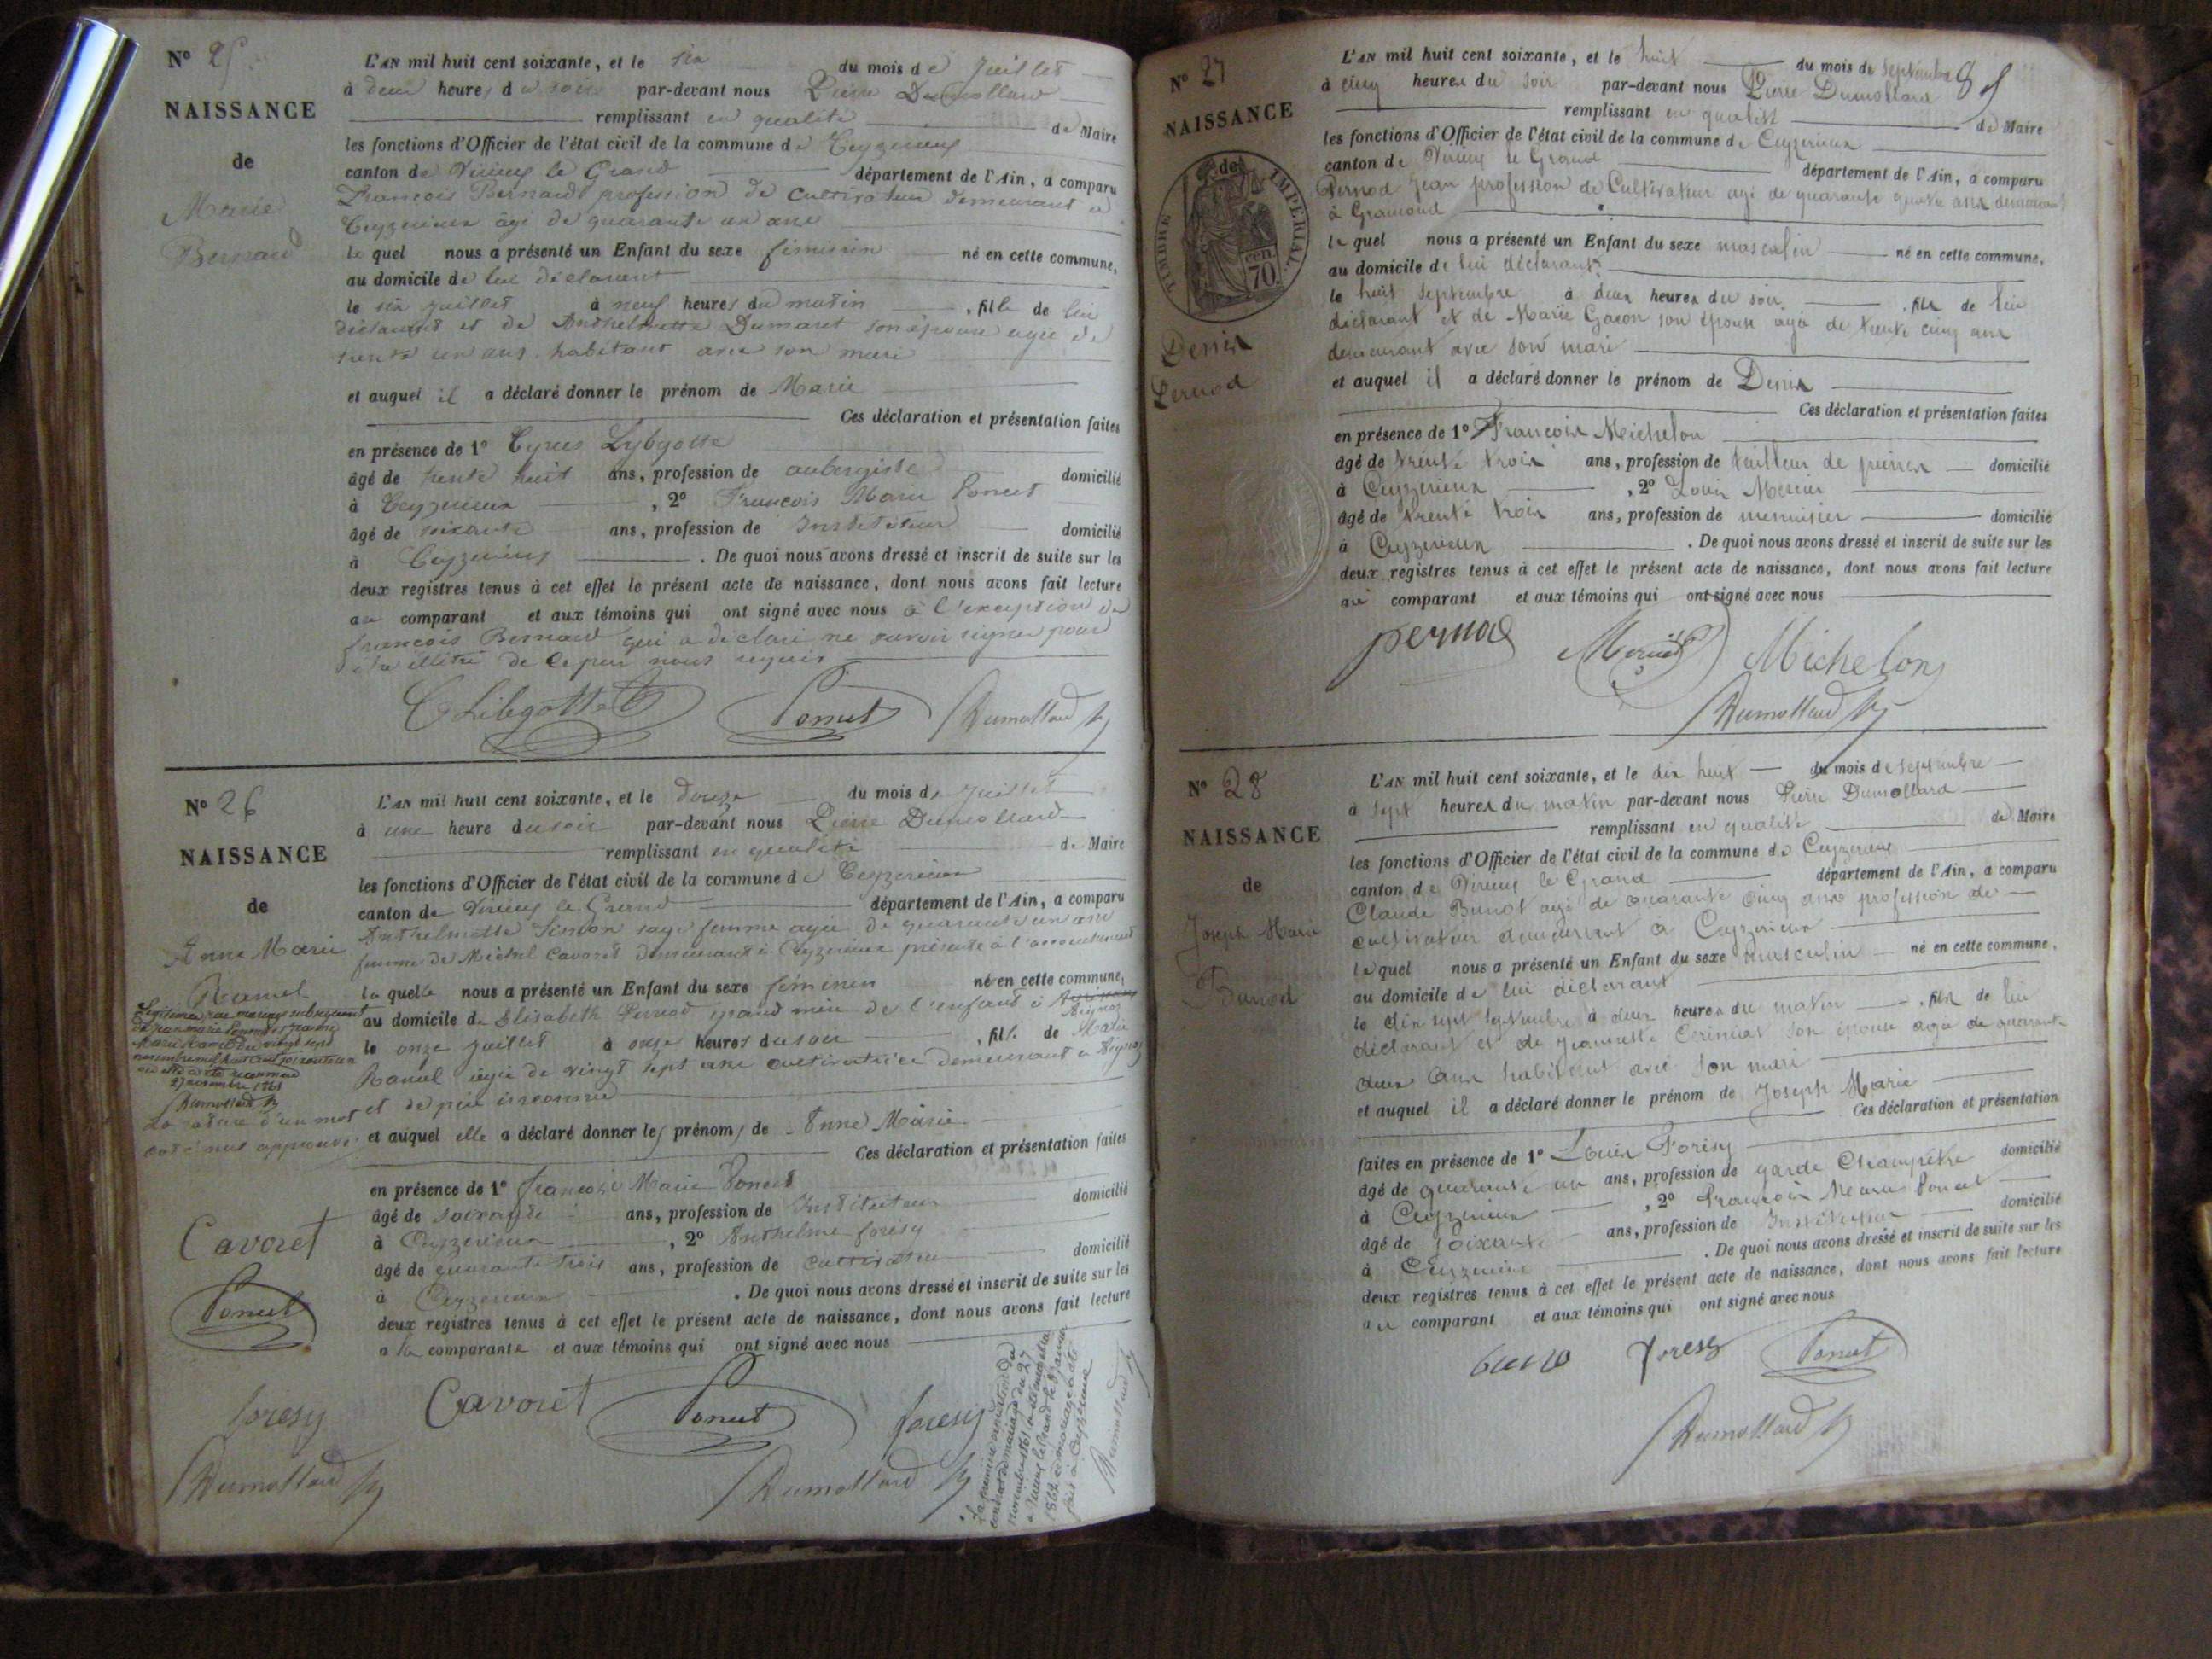 N° 25
NAISSANCE
de
Marie
Bernard
L'AN mil huit cent soixante, et le six du mois de Juillet
à deux heures du soir par-devant nous Pierre Dumollard
remplissant en qualité de Maire
les fonctions d'Officier de l'état civil de la commune de Ceyzerieux
canton de Virieux le Grand département de l'Ain, a comparu
François Bernard profession de cultivateur demeurant à
Ceyzerieux âgé de quarante un ans
lequel nous a présenté un Enfant du sexe féminin né en cette commune,
au domicile de lui déclarant
le six juillet à neuf heures du matin , fille de lui
déclarant et de Anthelmette Dumaret son épouse agée de
trente un ans habitant avec son mari
et auquel il a déclaré donner le prénom de Marie
Ces déclaration et présentation faites
en présence de 1° Cyrus Lybgotte
âgé de trente huit ans, profession de aubergiste domicilié
à Ceyzerieux , 2° François Marie Poncet
âgé de soixante ans, profession de Instituteur domicilié
à Ceyzerieux . De quoi nous avons dressé et inscrit de suite sur les
deux registres tenus à cet effet le présent acte de naissance, dont nous avons fait lecture
au comparant et aux témoins qui ont signé avec nous à l'exception de
françois Bernard qui a déclaré ne savoir signer pour
être illétré de ce par nous requis
C Libgotte Poncet Dumollard
N° 26
NAISSANCE
de
Anne Marie
Ramel
Légitimée par mariage subséquent
de Jean marie
Marie Ramel du vingt sept
novembre mil huit cent soixante un
où elle a été reconnue
27 novembre 1861
Dumollard
La rature d'un mot
coté nul approuvé
Cavoret
Poncet
foresy
Dumollard
L'AN mil huit cent soixante, et le douze du mois de Juillet
à une heure du soir par-devant nous Pierre Dumollard
remplissant en qualité de Maire
les fonctions d'Officier de l'état civil de la commune de Ceyzerieux
canton de Virieux le Grand département de l'Ain, a comparu
Anthelmette Simon sage femme agée de quarante un ans
femme de Michel Cavoret demeurant à Ceyzerieux présente à l'accouchement
laquelle nous a présenté un Enfant du sexe féminin né en cette commune,
au domicile de Elisabeth Pernod grand mère de l'enfant à
le onze juillet à onze heures du soir , fille de Marie
Ramel agée de vingt sept ans cultivatrice demeurant à
et de père inconnu
et auquel elle a déclaré donner les prénoms de Anne Marie
Ces déclaration et présentation faites
en présence de 1° françois Marie Poncet
âgé de soixante ans, profession de Instituteur domicilié
à Ceyzerieux , 2° Anthelme foresy
âgé de quarante trois ans, profession de cultivateur domicilié
à Ceyzerieux . De quoi nous avons dressé et inscrit de suite sur les
deux registres tenus à cet effet le présent acte de naissance, dont nous avons fait lecture
a la comparante et aux témoins qui ont signé avec nous
Cavoret Poncet foresy
Dumollard
La première du
contrat de mariage du 27
novembre 1861 a été
à Virieux le Grand le 8 Janvier
1862 mariage a été
fait à Ceyzerieux
Dumollard
N° 27
NAISSANCE
TIMBRE IMPERIAL
70 cen.
Denis
Pernod
85
L'AN mil huit cent soixante, et le huit du mois de Septembre
à cinq heures du soir par-devant nous Pierre Dumollard
remplissant en qualité de Maire
les fonctions d'Officier de l'état civil de la commune de Ceyzerieux
canton de Virieux le Grand département de l'Ain, a comparu
Pernod Jean profession de Cultivateur agé de quarante quatre ans demeurant
à Gramond
lequel nous a présenté un Enfant du sexe masculin né en cette commune,
au domicile de lui déclarant
le huit Septembre à deux heures du soir , fils de lui
déclarant et de Marie Gacon son épouse agée de trente cinq ans
demeurant avec son mari
et auquel il a déclaré donner le prénom de Denis
Ces déclaration et présentation faites
en présence de 1° François Michelon
âgé de trente trois ans, profession de tailleur de pierres domicilié
à Ceyzerieux , 2° Louis Mercier
âgé de trente trois ans, profession de menuisier domicilié
à Ceyzerieux . De quoi nous avons dressé et inscrit de suite sur les
deux registres tenus à cet effet le présent acte de naissance, dont nous avons fait lecture
au comparant et aux témoins qui ont signé avec nous
pernod Mercier Michelon
Dumollard
N° 28
NAISSANCE
de
Joseph Marie
Bunod
L'AN mil huit cent soixante, et le dix huit du mois de septembre
à sept heures du matin par-devant nous Pierre Dumollard
remplissant en qualité de Maire
les fonctions d'Officier de l'état civil de la commune de Ceyzerieux
canton de Virieux le Grand département de l'Ain, a comparu
Claude Bunod agé de quarante cinq ans profession de
cultivateur demeurant à Ceyzerieux
lequel nous a présenté un Enfant du sexe masculin né en cette commune,
au domicile de lui déclarant
le dix sept septembre à deux heures du matin , fils de lui
déclarant et de Jeannette son épouse agée de quarante
deux ans habitant avec son mari
et auquel il a déclaré donner le prénom de Joseph Marie
Ces déclaration et présentation
faites en présence de 1° Louis Foresy
âgé de quarante un ans, profession de garde Champêtre domicilié
à Ceyzerieux , 2° François Marie Poncet
âgé de soixante ans, profession de Instituteur domicilié
à Ceyzerieux . De quoi nous avons dressé et inscrit de suite sur les
deux registres tenus à cet effet le présent acte de naissance, dont nous avons fait lecture
au comparant et aux témoins qui ont signé avec nous
foresy Poncet
Dumollard